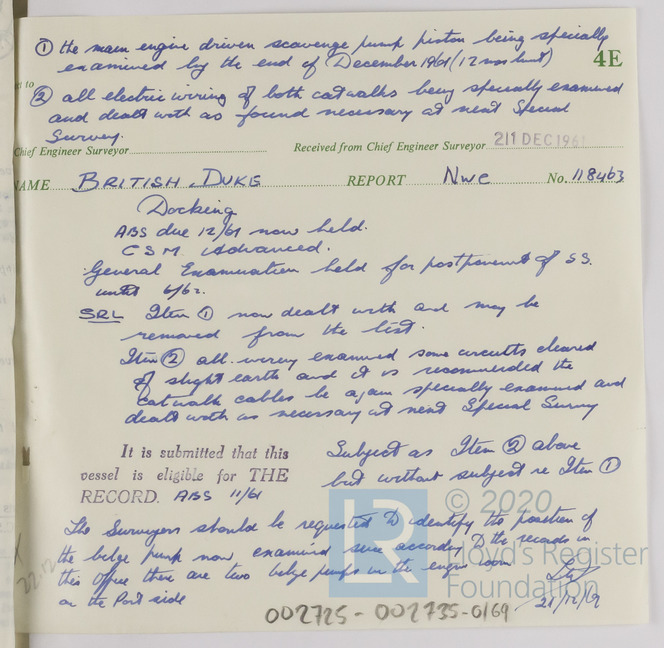 ① the main engine driven scavenge pump piston being specially
examined by the end of December 1961 (12 mos limit)
4E
② all electric wiring of both catwalks being specially examined
and dealt with as found necessary at next Special
Survey.
Chief Engineer Surveyor
Received from Chief Engineer Surveyor 21 DEC 1961
NAME BRITISH DUKE REPORT Nwc No. 118463
Docking
ABS due 12/61 now held.
CSM Advanced.
General Examination held for postponement of SS.
until 6/62.
SRL Item ① now dealt with and may be
removed from the list.
Item ② all wiring examined some circuits cleared
of slight earth and it is recommended the
catwalk cables be again specially examined and
dealt with as necessary at next Special Survey
It is submitted that this
vessel is eligible for THE
RECORD. ABS 11/61
Subject as Item ② above
but without subject re Item ①
The Surveyors should be requested to identify the position of
the bilge pump now examined since according to the records in
this office there are two bilge pumps in the engine room
on the Port side
21/12/61
© 2020
Lloyd's Register
Foundation
LR
002725 - 002735-0169